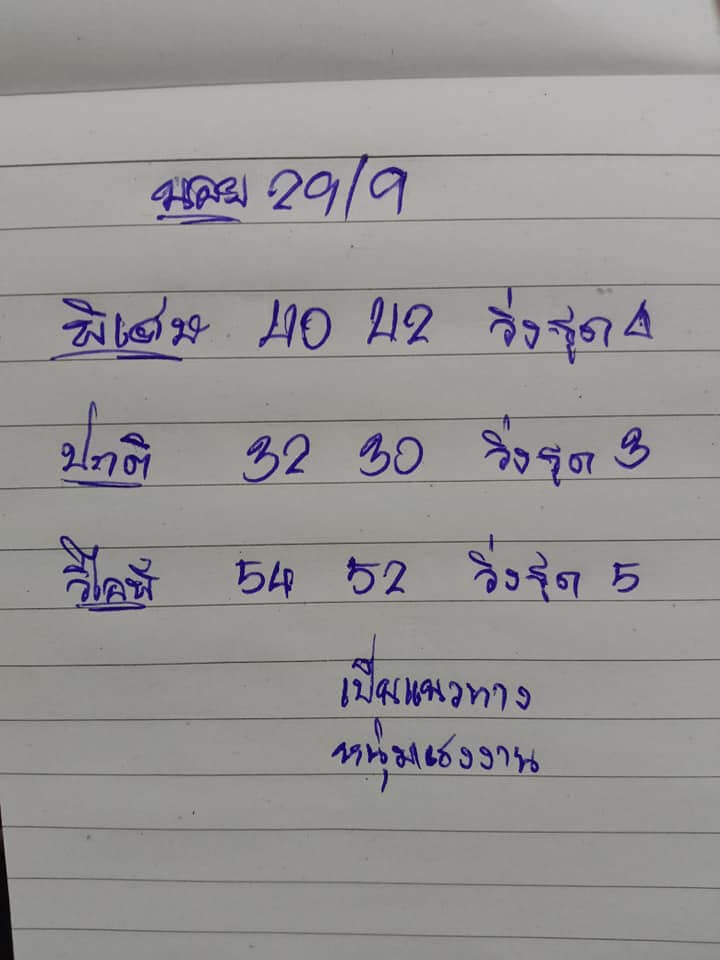 นอย 29/9
พิเศษ 40 42 วิ่งรูด 4
ปกติ 32 30 วิ่งรูด 3
วีไอพี 54 52 วิ่งรูด 5
เป็นแนวทาง
หนุ่มแรงงาน